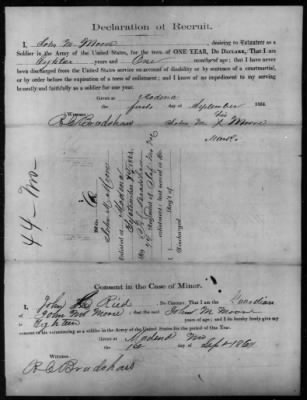 Declaration of Recruit.
I, John M Moore desiring to Volunteer as a
Soldier in the Army of the United States, for the term of ONE YEAR, Do Declare, That I am
Eighteen years and One month of age; that I have never
been discharged from the United States service on account of disability or by sentence of a court-martial,
or by order before the expiration of a term of enlistment; and I know of no impediment to my serving
honestly and faithfully as a soldier for one year.
Given at Medina
first day of September 1864
Witness: his
R C Bradshaw John M X Moore
Mark
44 - Mo -
John M. Moore
Enlisted at Medina
By
enlistment; last served in Co.
Reg't of
Discharged
Consent in the Case of Minor.
I, John Ried Do Certify, That I am the Guardian
of John M Moore; that the said John M Moore
is Eighteen years of age; and I do hereby freely give my
consent to his volunteering as a soldier in the Army of the United States for the period of One Year.
Given at Medina Mo
1st Sept 1864
Witness:
R C Bradshaw